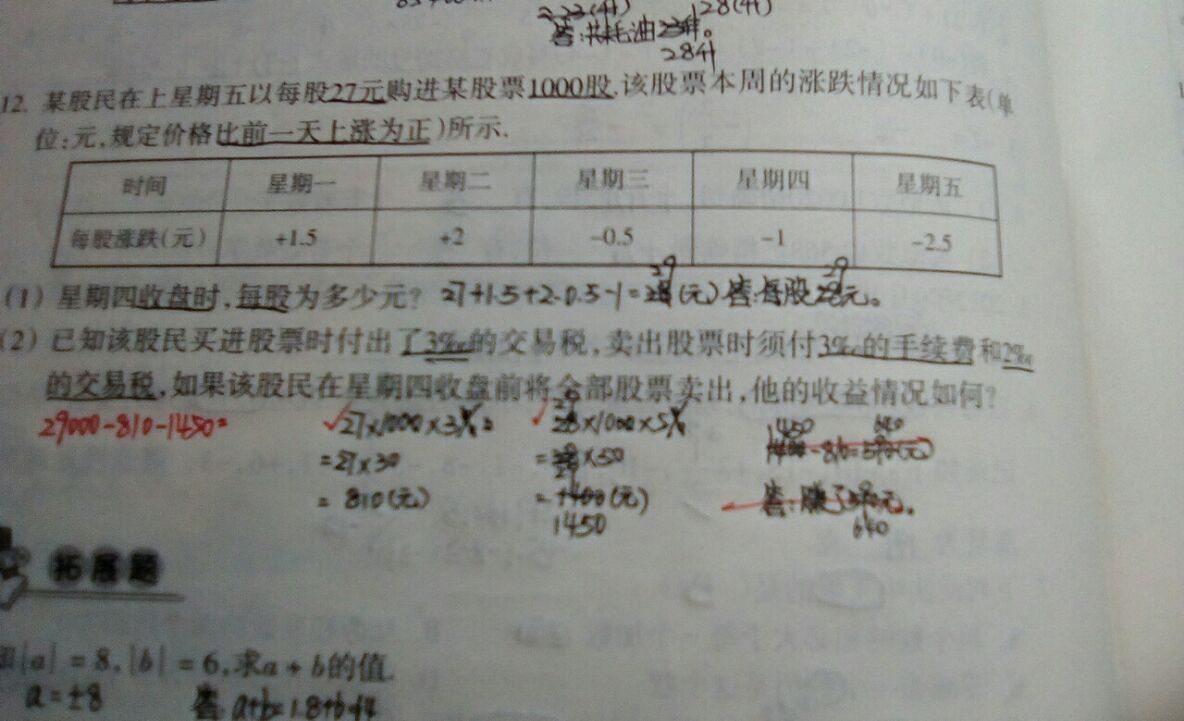 28(升)
答:共耗油 升。
28升
12. 某股民在上星期五以每股27元购进某股票1000股.该股票本周的涨跌情况如下表(单
位:元,规定价格比前一天上涨为正)所示.
时间 星期一 星期二 星期三 星期四 星期五
每股涨跌(元) +1.5 +2 -0.5 -1 -2.5
(1) 星期四收盘时,每股为多少元? 27+1.5+2-0.5-1=29(元) 答:每股29元。
(2) 已知该股民买进股票时付出了3‰的交易税,卖出股票时须付3‰的手续费和2‰
的交易税,如果该股民在星期四收盘前将全部股票卖出,他的收益情况如何?
29000-810-1450= 27×1000×3%= 29×1000×5% 1450 640
=27×30 =29×50 -810= (元)
= 810(元) = 1450(元) 答:赚了 元。
640
拓展题
|a|=8,|b|=6,求a+b的值.
a=±8 答:a+b=